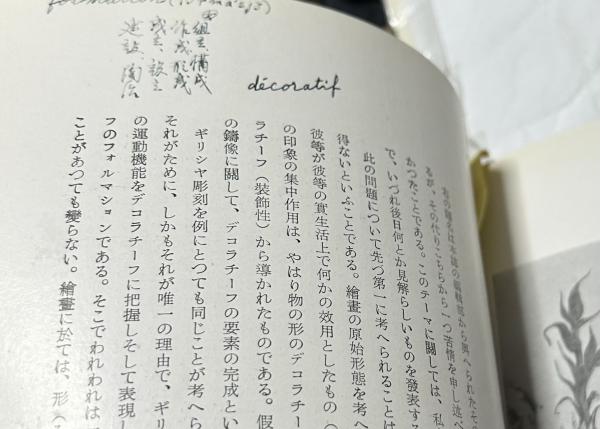 formation
組立、構成
作成、形成
成立、設立
建設、陶冶
décoratif
右の題名は本誌の編輯部から與へられたそ
るが、その代りこちらから一つ苦情を申し述べ
かつたことである。このテーマに關しては、私
で、いづれ後日何とか見解らしいものを發表する
此の問題について先づ第一に考へられることは
得ないといふことである。繪畫の原始形態を考へ
彼等が彼等の實生活上で何かの效用としたもの（
の印象の集中作用は、やはり物の形のデコラチー
ラチーフ（装飾性）から導かれたものである。假
の鑄像に關して、デコラチーフの要素の完成とい
ギリシヤ彫刻を例にとつても同じことが考へら
それがために、しかもそれが唯一の理由で、ギリ
の運動機能をデコラチーフに把握しそして表現し
フのフォルマションである。そこでわれわれは
ことがあつても變らない。繪畫に於ては、形（